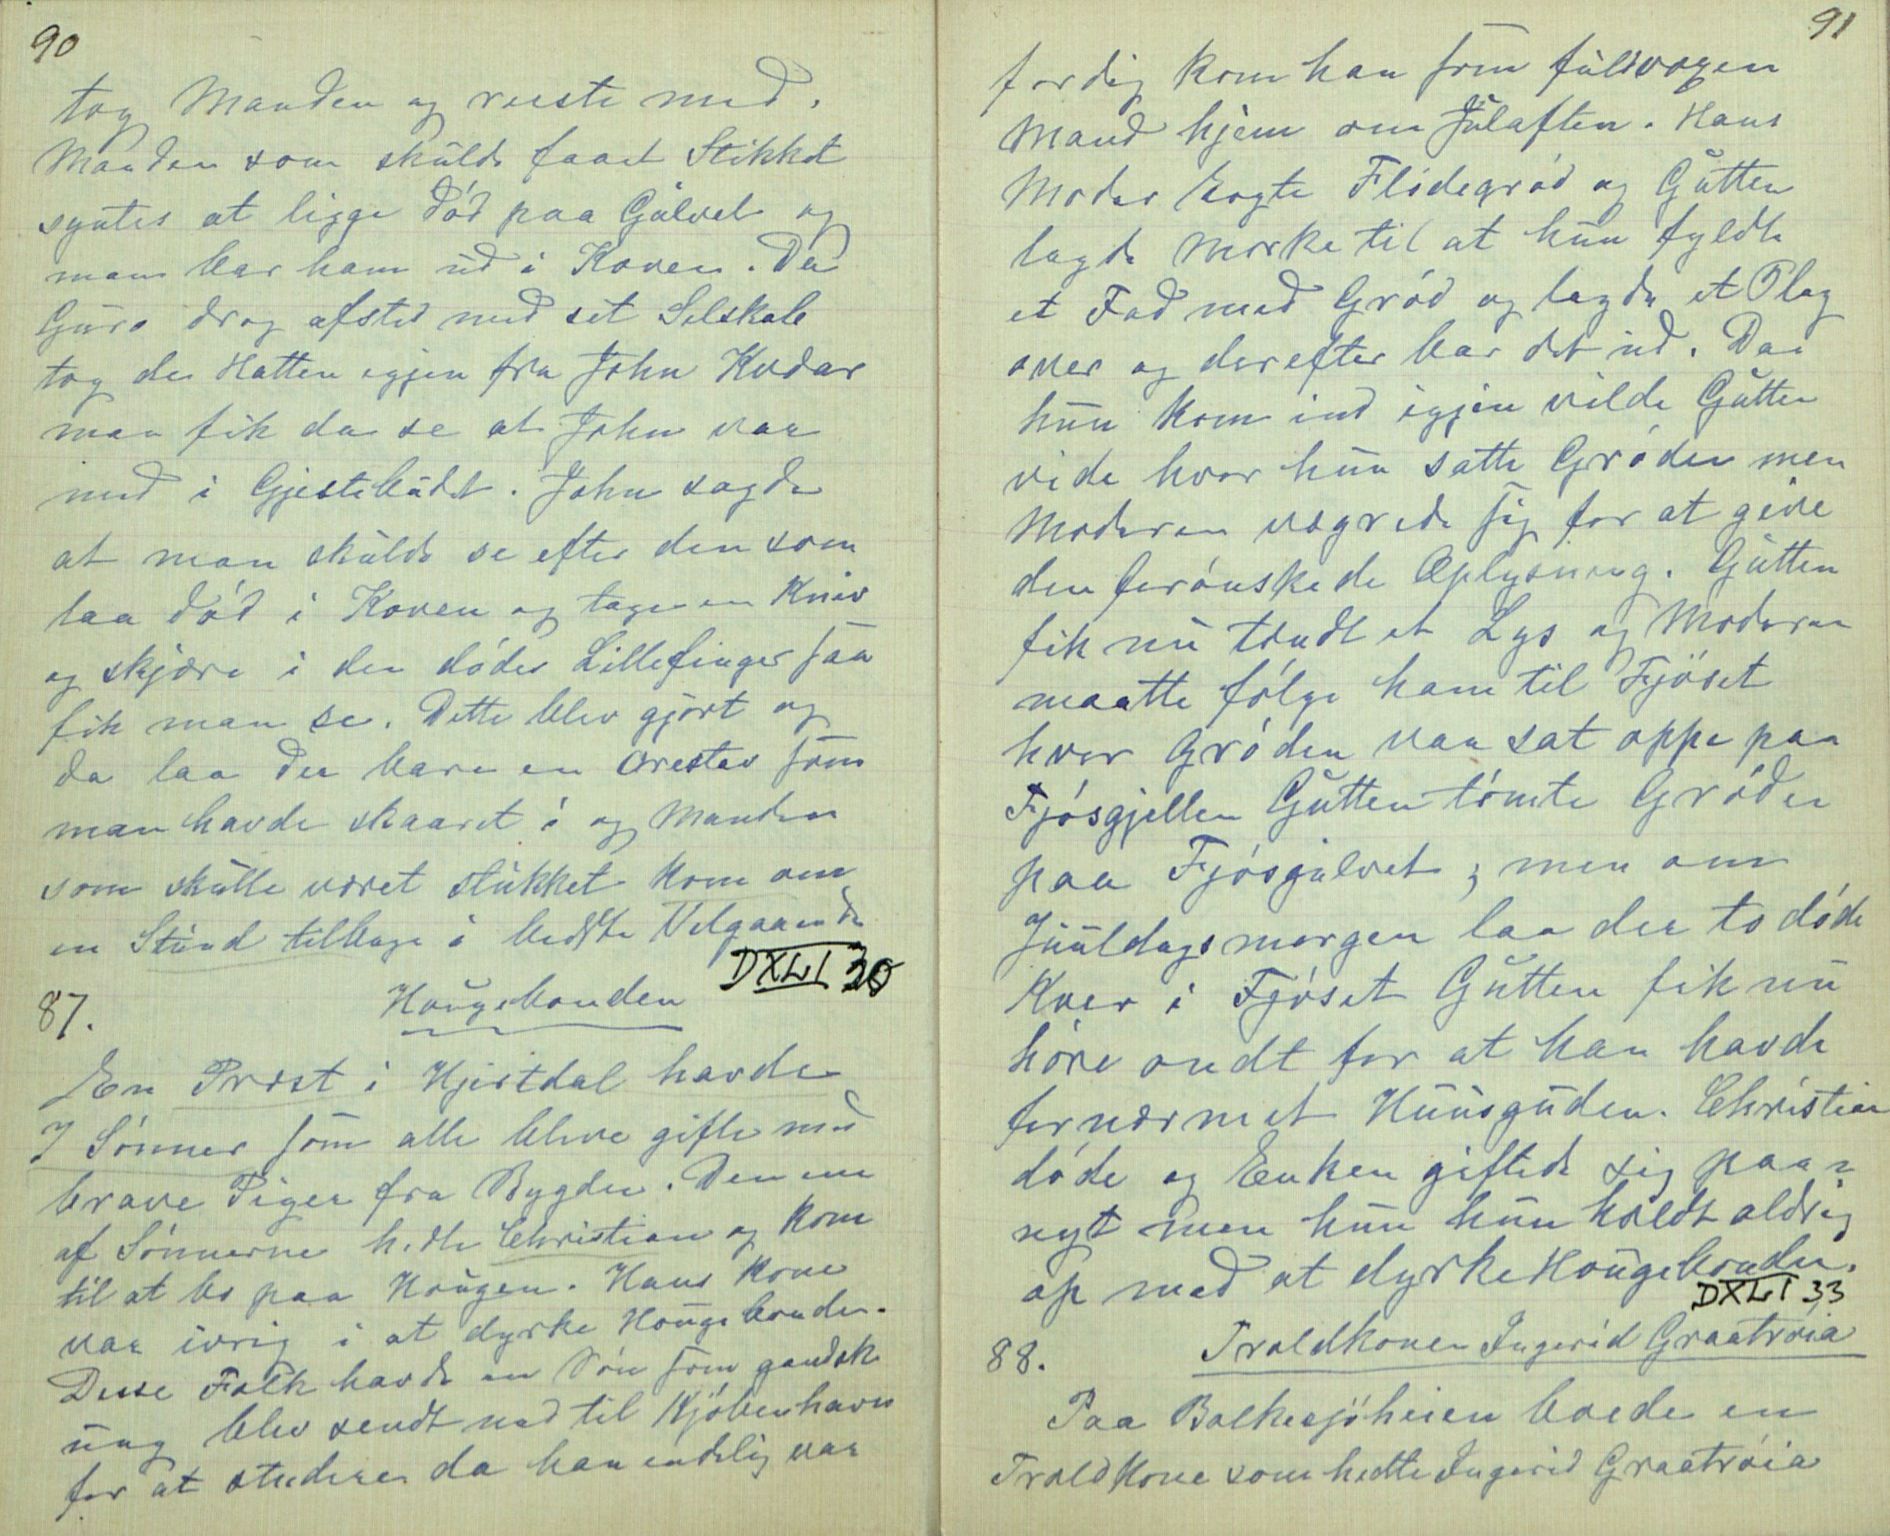 90
tog Manden og reiste med.
Manden som skulde faaet Stikket
syntes at ligge død paa Gulvet og
man bar ham ud i Koven. Da
Guro drog afsted med sit Selskab
tog de Hatten igjen fra John Kvdar
man fik da se at John var
med i Gjestebudet. John sagde
at man skulde se efter den som
laa død i Koven og tage en Kniv
og skjære i den dødes Lillefinger saa
fik man se. Dette blev gjort og
da laa der bare en Orestav som
man havde skaaret i og Manden
som skulle været stukket kom om
en Stund tilbage i bedste Velgaaende
DXLI 30
87. Hougebonden
En Præst i Hjertdal havde
7 Sønner som alle bleve gifte med
brave Piger fra Bygden. Den ene
af Sønnerne hedte Christian og kom
til at bo paa Hougen. Hans Kone
var ivrig i at dyrke Hougebonden.
Disse Folk havde en Søn som gandske
ung blev sendt ned til Kjøbenhavn
for at studere da han endelig var
91
færdig kom han som fuldvoxen
Mand hjem om Julaften. Hans
Moder kogte Flødegrød og Gutten
lagde Mærke til at hun fyldte
et Fad med Grød og lagde et Plag
over og derefter bar det ud. Daa
hun kom ind igjen vilde Gutten
vide hvor hun satte Grøden men
Moderen vægrede sig for at give
den forønskede Oplysning. Gutten
fik nu tændt et Lys og Moderen
maatte følge ham til Fjøset
hvor Grøden var sat oppe paa
Fjøsgjellen Gutten tømte Grøden
paa Fjøsgulvet; men om
Juuldagsmorgen laa der to døde
Kver i Fjøset Gutten fik nu
høre ondt for at han havde
fornærmet Huusguden. Christian
døde og Enken giftede sig paa
nyt men hun hun holdt aldrig
op med at dyrke Hougebonden.
DXLI 33
88. Troldkonen Ingerid Graatrøia
Paa Bolkesjøheien boede en
Troldkone som hedte Ingerid Graatrøia